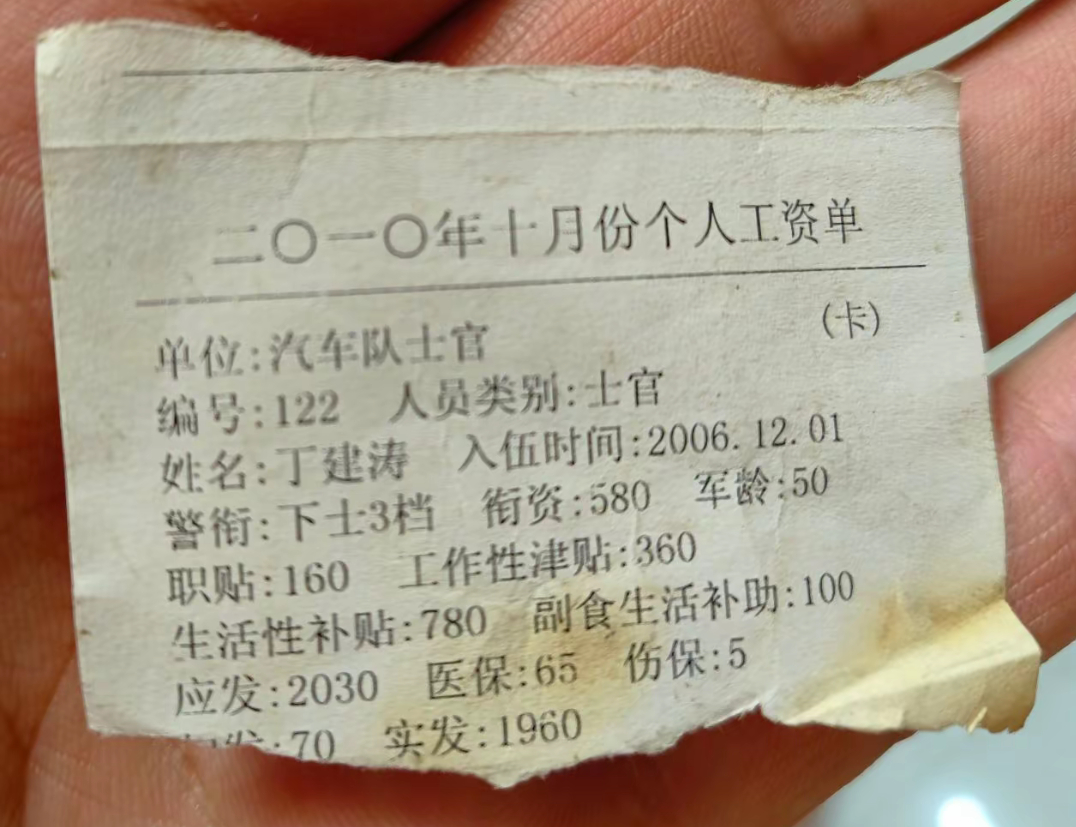 二〇一〇年十月份个人工资单
(卡)
单位:汽车队士官
编号:122 人员类别:士官
姓名:丁建涛 入伍时间:2006.12.01
警衔:下士3档 衔资:580 军龄:50
职贴:160 工作性津贴:360
生活性补贴:780 副食生活补助:100
应发:2030 医保:65 伤保:5
:70 实发:1960